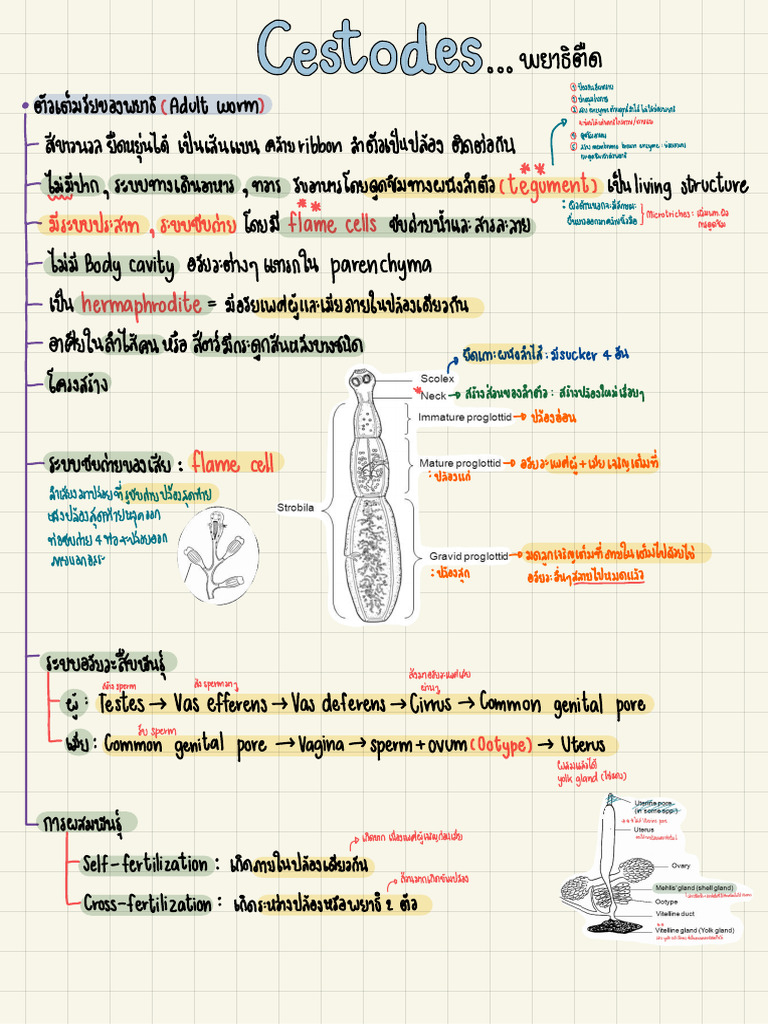 Cestodes... พยาธิตืด
ตัวเต็มวัยของพยาธิ (Adult worm)
สีขาวนวล ยืดหยุ่นได้ เป็นเส้นแบน คล้าย ribbon ลำตัวเป็นปล้อง ติดต่อกัน
ไม่มีปาก, ระบบทางเดินอาหาร, ทวาร รับอาหารโดยดูดซึมทางผนังลำตัว (tegument) เป็น living structure
มีระบบประสาท, ระบบขับถ่าย โดยมี flame cells ขับถ่ายน้ำและสารละลาย
Microtriches: เพิ่มพท.ผิว
การดูดซึม
ไม่มี Body cavity อวัยวะต่างๆ แทรกใน parenchyma
เป็น hermaphrodite = มีอวัยเพศผู้และเมียภายในปล้องเดียวกัน
อาศัยในลำไส้คน หรือ สัตว์มีกระดูกสันหลังบางชนิด
โครงสร้าง
Scolex
ยึดเกาะผนังลำไส้: มี sucker 4 อัน
*Neck → สร้างส่วนของลำตัว: สร้างปล้องใหม่เรื่อยๆ
Immature proglottid → ปล้องอ่อน
Mature proglottid → อวัยวะเพศผู้ + เมีย เจริญเต็มที่
: ปล้องแก่
Strobila
Gravid proglottid → มดลูกเจริญเต็มที่ ภายในเต็มไปด้วยไข่
: ปล้องสุก
อวัยวะอื่นๆ สลายไปหมดแล้ว
ระบบขับถ่ายของเสีย: flame cell
ลำเลียงมาปล่อยที่รูขับถ่ายปล้องสุดท้าย
แต่ปล้องสุดท้ายหลุดออก
ท่อขับถ่าย 4 ท่อ → ปล่อยออก
ระบบอวัยวะสืบพันธุ์
สร้าง sperm
ผู้: Testes → Vas efferens → Vas deferens → Cirrus → Common genital pore
รับ sperm
เมีย: Common genital pore → Vagina → sperm+ovum (Ootype) → Uterus
yolk gland (ไข่แดง)
การผสมพันธุ์
Self-fertilization: เกิดภายในปล้องเดียวกัน
Cross-fertilization: เกิดระหว่างปล้องหรือพยาธิ 2 ตัว
Uterine pore
(in some spp.)
Uterus
Ovary
Mehlis' gland (shell gland)
Ootype
Vitelline duct
Vitelline gland (Yolk gland)